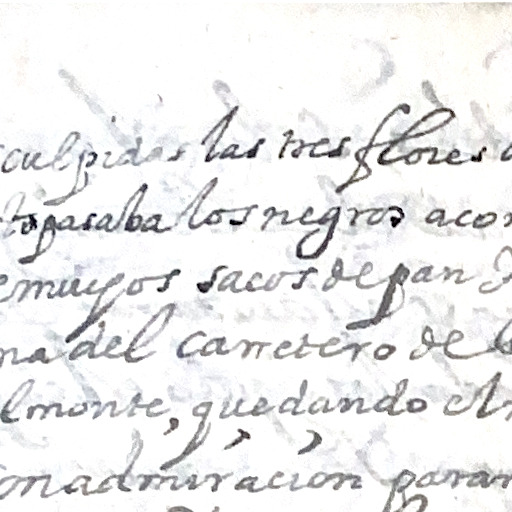 sculpidas las tres flores
pasaba los negros acon
emuyos sacos de pan
ma del carretero de
el monte, quedando el
con admiracion parar